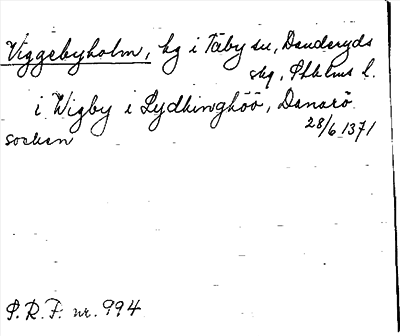 Viggebyholm, hg i Täby sn, Danderyds
skg, Sthlms l.
i Wigby i Lydhinghöö, Danarö
28/6 1371
socken
P.R.F. nr. 994